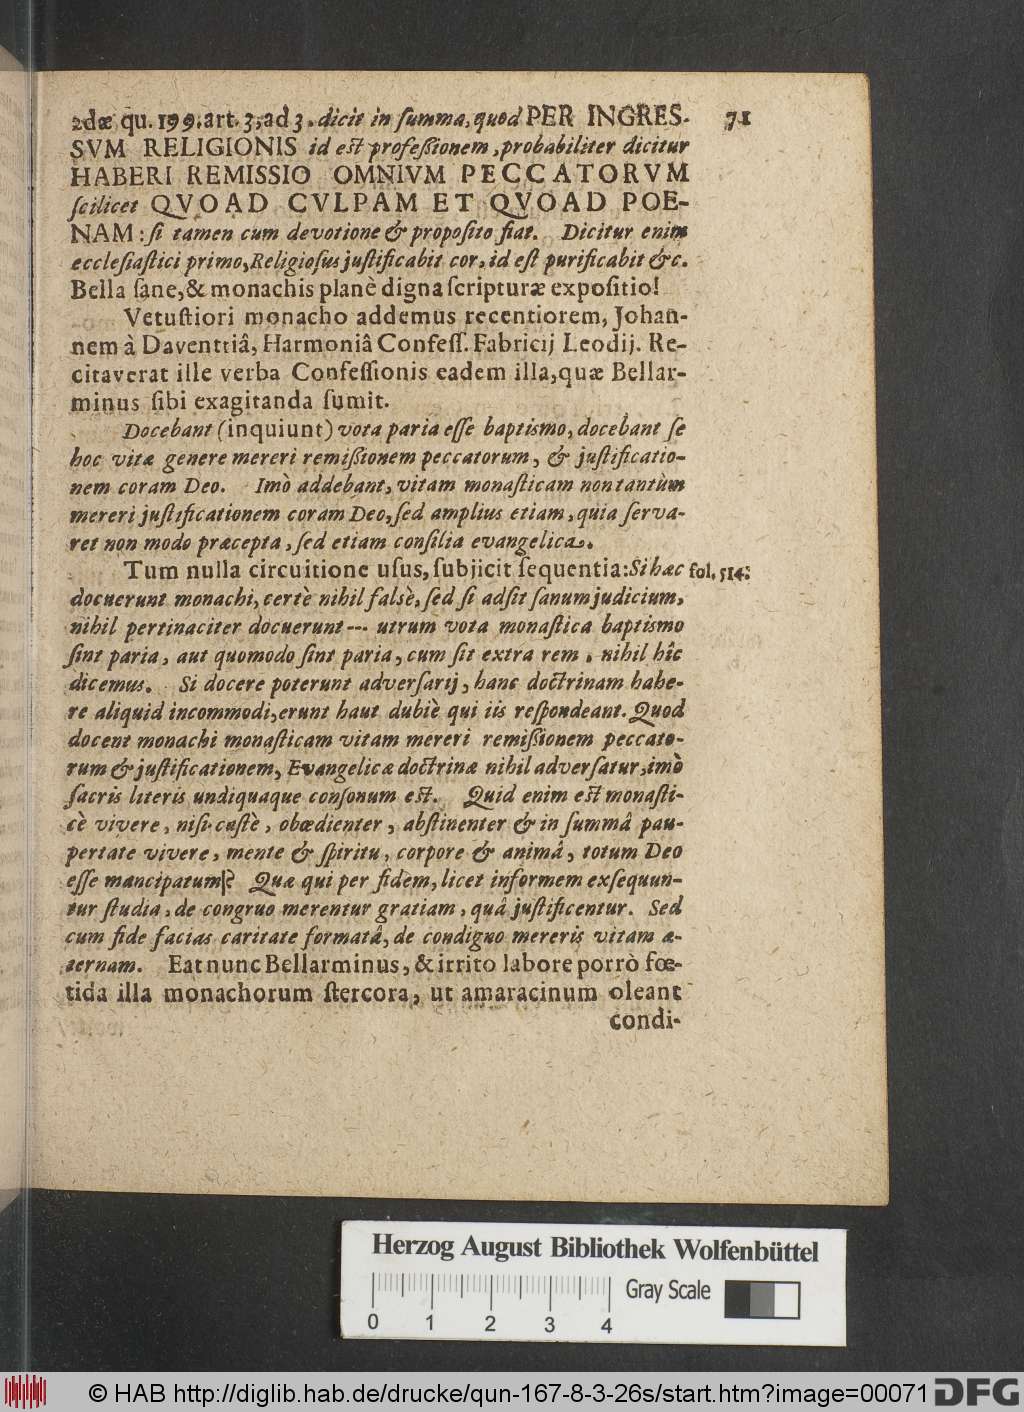 2dæ qu. 199. art. 3, ad 3. dicit in ſumma, quod PER INGRES-
71
SVM RELIGIONIS id eſt profeſſionem, probabiliter dicitur
HABERI REMISSIO OMNIVM PECCATORVM
ſcilicet QVOAD CVLPAM ET QVOAD POE-
NAM: ſi tamen cum devotione & propoſito fiat. Dicitur enim
eccleſiaſtici primo, Religioſus juſtificabit cor, id eſt purificabit &c.
Bella ſane, & monachis planè digna ſcripturæ expoſitio!
Vetuſtiori monacho addemus recentiorem, Johan-
nem à Daventriâ, Harmoniâ Confeſſ. Fabricij Leodij. Re-
citaverat ille verba Confeſſionis eadem illa, quæ Bellar-
minus ſibi exagitanda ſumit.
Docebant (inquiunt) vota paria eſſe baptiſmo, docebant ſe
hoc vitæ genere mereri remiſſionem peccatorum, & juſtificatio-
nem coram Deo. Imò addebant, vitam monaſticam non tantùm
mereri juſtificationem coram Deo, ſed amplius etiam, quia ſerva-
ret non modo præcepta, ſed etiam conſilia evangelica.
Tum nulla circuitione uſus, ſubjicit ſequentia: Si hæc
fol. 514.
docuerunt monachi, certè nihil falsè, ſed ſi adſit ſanum judicium,
nihil pertinaciter docuerunt --- utrum vota monaſtica baptiſmo
ſint paria, aut quomodo ſint paria, cum ſit extra rem, nihil hîc
dicemus. Si docere poterunt adverſarij, hanc doctrinam habe-
re aliquid incommodi, erunt haut dubiè qui iis reſpondeant. Quod
docent monachi monaſticam vitam mereri remiſſionem peccato-
rum & juſtificationem, Evangelicæ doctrinæ nihil adverſatur, imò
ſacris literis undiquaque conſonum eſt. Quid enim eſt monaſti-
cè vivere, niſi caſtè, obœdienter, abſtinenter & in ſummâ pau-
pertate vivere, mente & ſpiritu, corpore & animâ, totum Deo
eſſe mancipatum? Quæ qui per fidem, licet informem exſequun-
tur ſtudia, de congruo merentur gratiam, quâ juſtificentur. Sed
cum fide facias caritate formatâ, de condigno mereris vitam æ-
ternam. Eat nunc Bellarminus, & irrito labore porrò fœ-
tida illa monachorum ſtercora, ut amaracinum oleant
condi-
Herzog August Bibliothek Wolfenbüttel
Gray Scale
0 1 2 3 4
© HAB http://diglib.hab.de/drucke/qun-167-8-3-26s/start.htm?image=00071
DFG